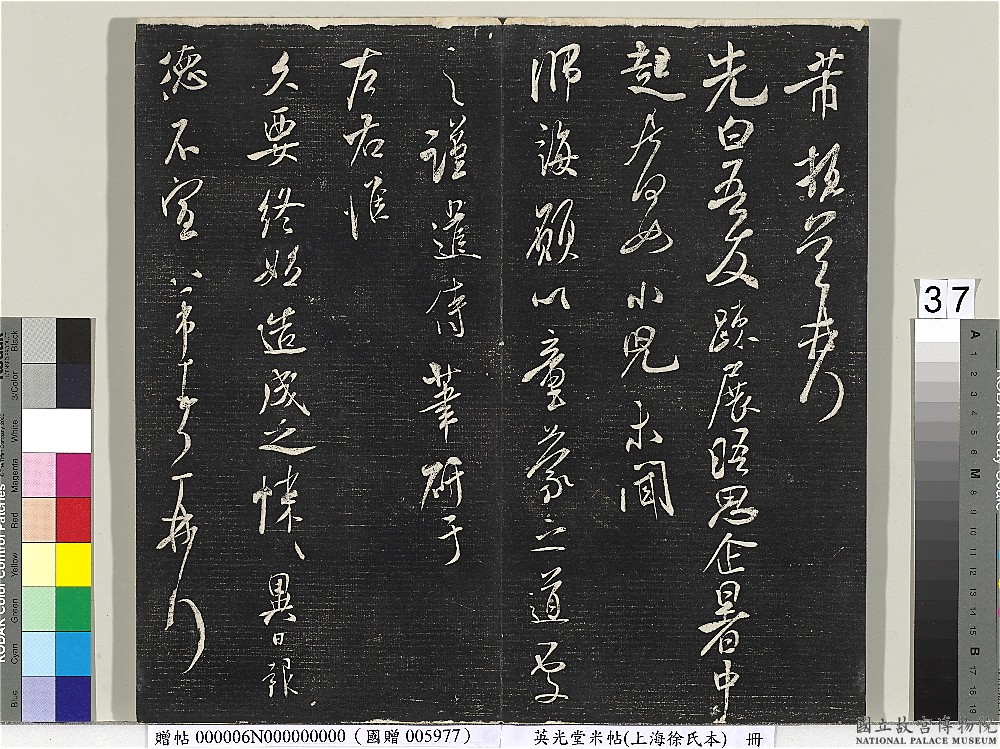 芾頓首再拜
先白吾友疎展晤思企暑中
起居何如小兒未聞
師誨願以童蒙之道受
之謹遣侍筆研于
左右惟
久要終始造成之悚悚異日報
德不宣芾頓首再拜
37
贈帖 000006N000000000 (國贈 005977) 英光堂米帖(上海徐氏本) 冊
國立故宮博物院
NATIONAL PALACE MUSEUM
KODAK Color Control Patches
Blue
Cyan
Green
Yellow
Red
Magenta
White
3/Color
Black
A 1 2 3 4 5 6 M 8 9 10 11 12 13 14 15 B 17 18 19